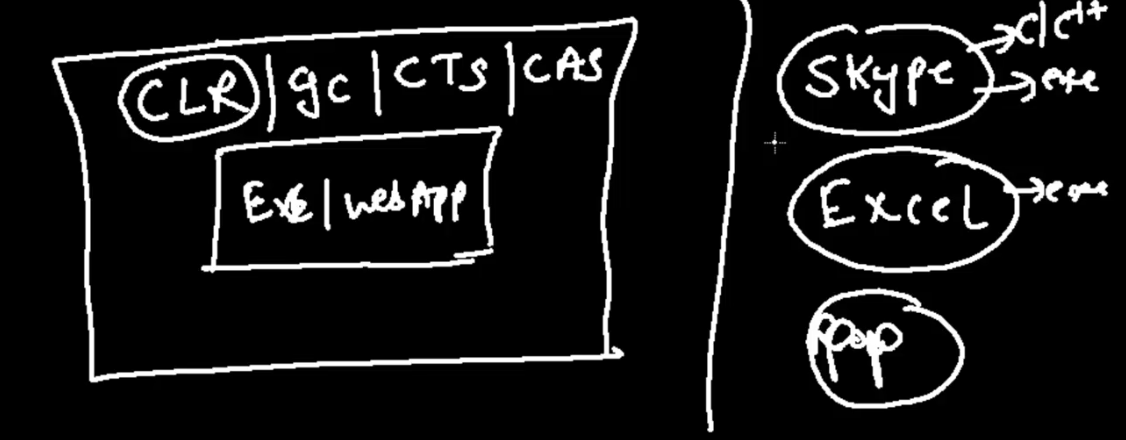 CLR | gc | CTS | CAS
Exe | webApp
Skype
C/C++
exe
Excel
exe